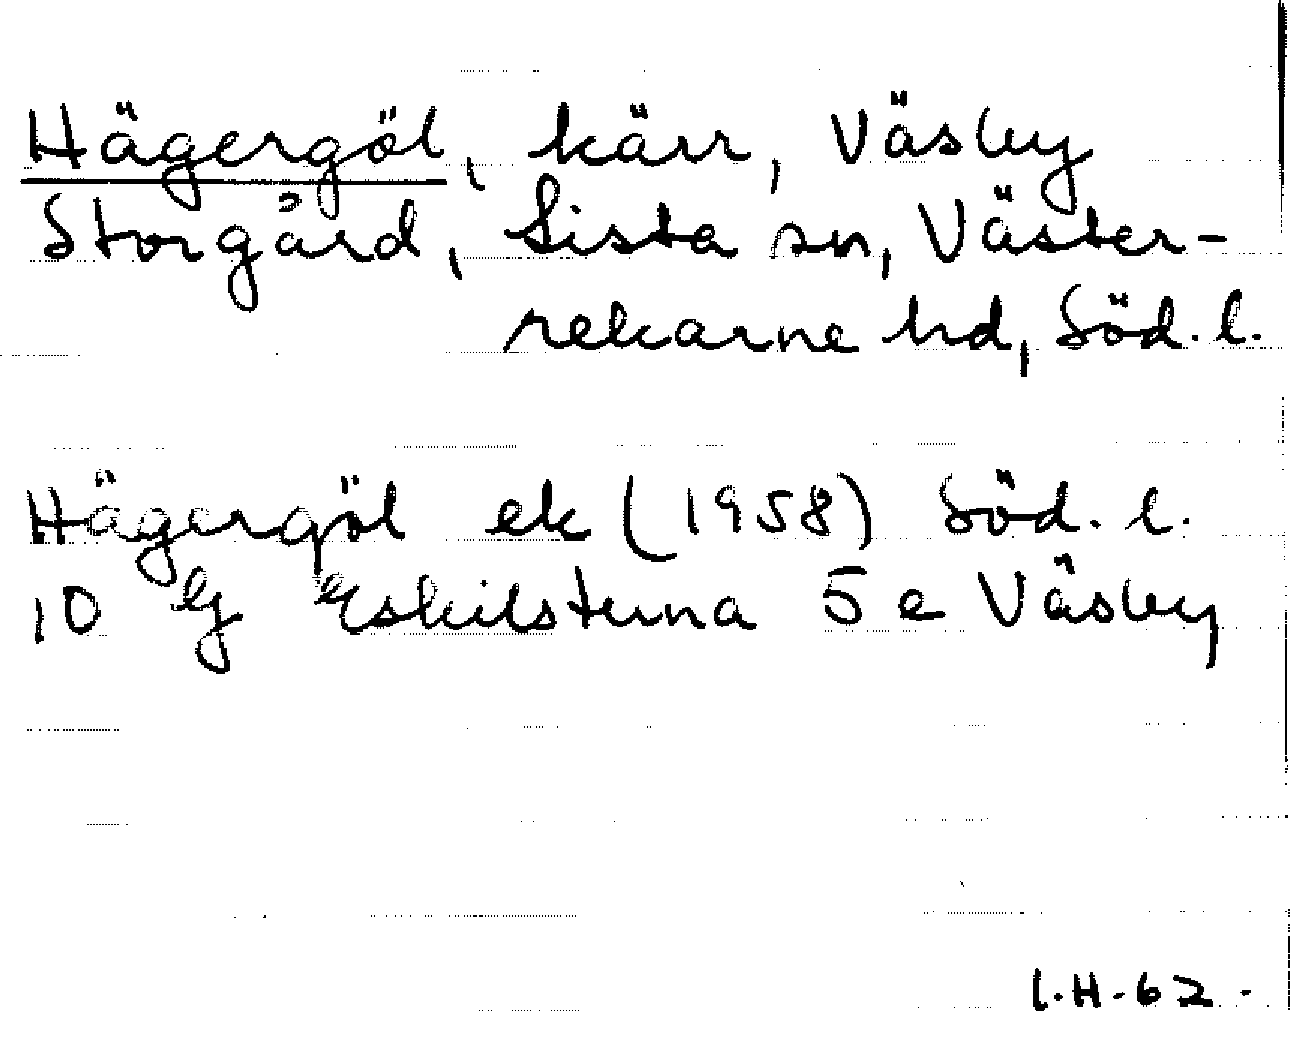 Hägergöl, kärr, Väsby
Storgård, Lista sn, Väster-
rekarne hd, Söd. l.
Hägergöl ek (1958) Söd. l.
10 G Eskilstuna 5 e Väsby
I.H.62.